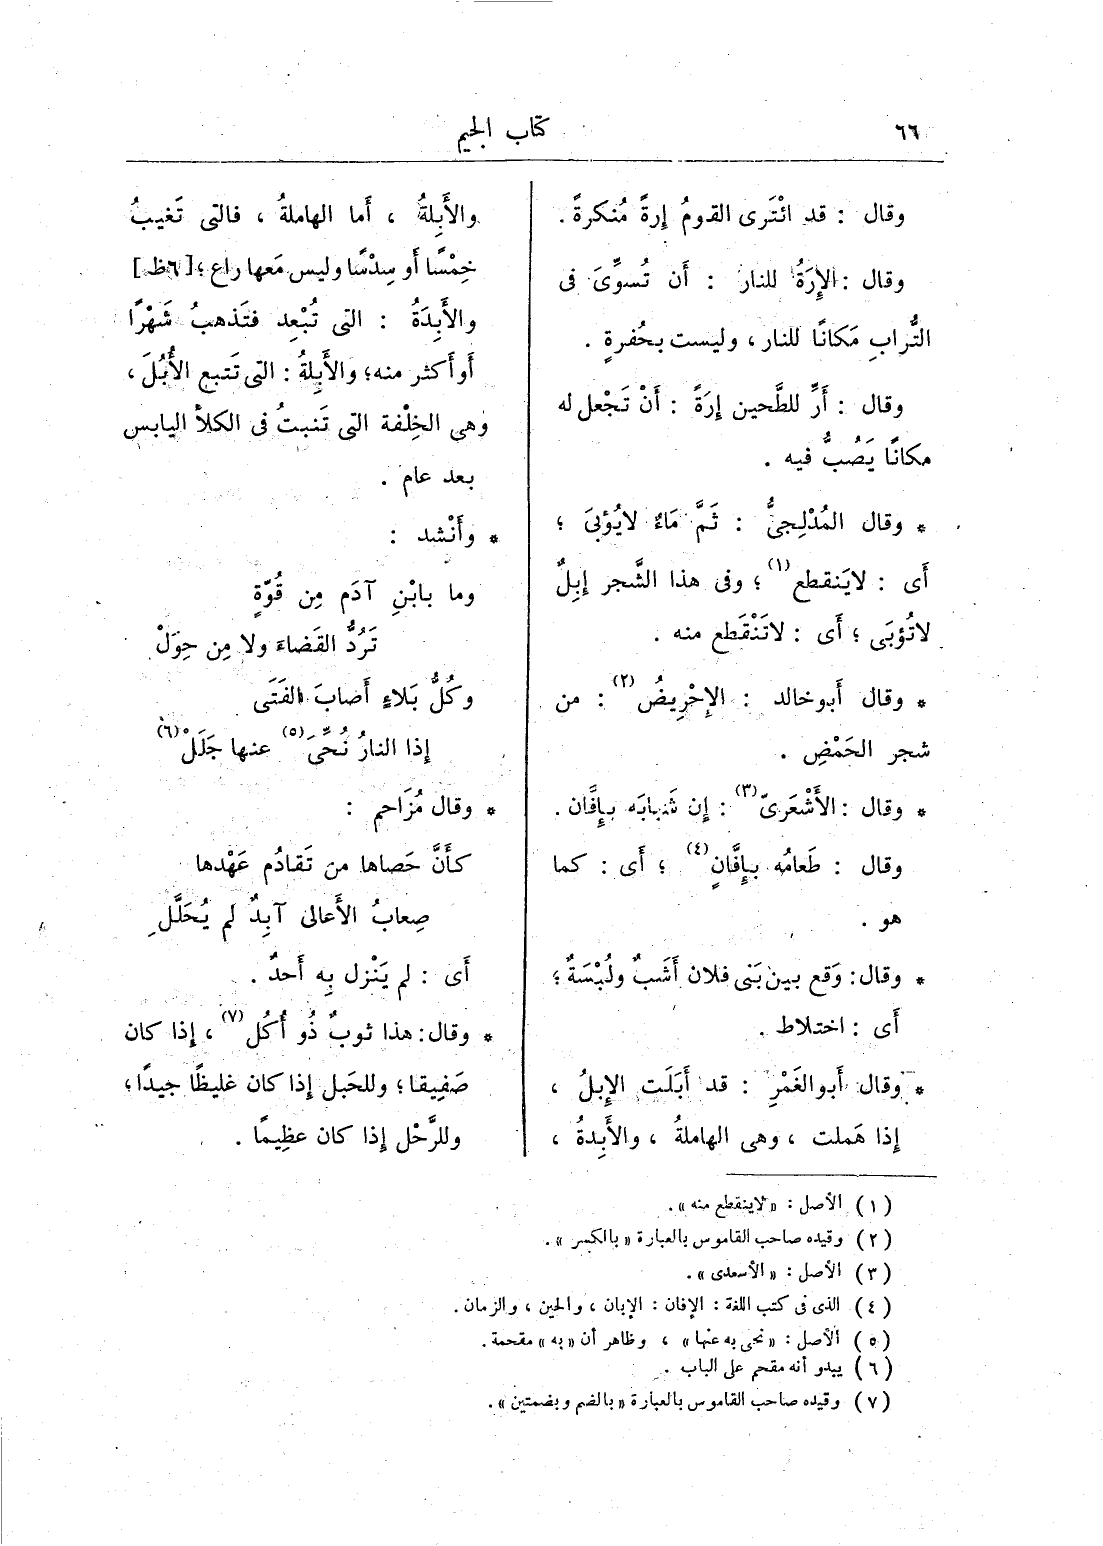 ٦٦
كتاب الجيم
وقال : قد ائْتَرى القومُ إرةً مُنكرةً .
وقال : الإِرَةُ للنار : أن تُسوِّىَ فى
التُّرابِ مَكانًا للنار ، وليست بحُفرةٍ .
وقال : أَرِّ للطَّحين إرَةً : أَنْ تَجْعل له
مكانًا يَصُبُّ فيه .
* وقال المُدْلِجىُّ : ثَمَّ مَاءٌ لايُؤْبىَ ؛
أَى : لايَنقطع (١) ؛ وفى هذا الشَّجر إبِلٌ
لاتُؤبَى ؛ أَى : لاتَنْقَطع منه .
* وقال أَبوخالد : الإِحْرِيضُ (٢) : من
شجر الحَمْضِ .
* وقال : الأَشْعَرىّ (٣) : إن شَبابَه بإِفَّان .
وقال : طَعامُه بإِفَّانٍ (٤) ؛ أَى : كما
هو .
* وقال : وَقع بين بَنى فلان أَشَبٌ ولُبْسَةٌ ؛
أَى : اختلاط .
* وقال أَبوالغَمْرِ : قد أَبَلَت الإِبلُ ،
إِذا هَملت ، وهى الهاملةُ ، والأَبِدةُ ،
والأَبِلةُ ، أَما الهاملةُ ، فالتى تَغيبُ
خِمْسًا أَو سِدْسًا وليس مَعها راع ؛ [٦ظ]
والأَبِدَةُ : التى تُبْعِد فتَذهبُ شَهْرًا
أَو أَكثر منه ؛ والأَبِلةُ : التى تَتبع الأُبُلَ ،
وهى الخِلْفة التى تَنبتُ فى الكلأ اليابس
بعد عام .
* وأَنْشد :
وما بابْنِ آدَم مِن قُوّةٍ
تَرُدُّ القَضاءَ ولا مِن حِوَلْ
وكُلُّ بَلاءٍ أَصابَ الفَتَى
إذا النارُ نُحِّىَ (٥) عنها جَلَلْ (٦)
* وقال مُزَاحم :
كأَنَّ حَصاها من تَقادُم عَهْدها
صِعابُ الأَعالى آبِدٌ لم يُحَلَّلِ
أَى : لم يَنْزل بِه أَحدٌ .
* وقال : هذا ثوبٌ ذُو أُكُل (٧) ، إِذا كان
صَفِيقا ؛ وللحَبل إِذا كان غليظًا جيدًا ؛
وللرَّحْل إِذا كان عظِيمًا .
(١) الأصل : « لاينقطع منه » .
(٢) وقيده صاحب القاموس بالعبارة « بالكسر » .
(٣) الأصل : « الأسعدى » .
(٤) الذى فى كتب اللغة : الإفان : الإبان ، والحين ، والزمان .
(٥) الأصل : « نحى به عنها » ، وظاهر أن « به » مقحمة .
(٦) يبدو أنه مقحم على الباب .
(٧) وقيده صاحب القاموس بالعبارة « بالضم وبضمتين » .